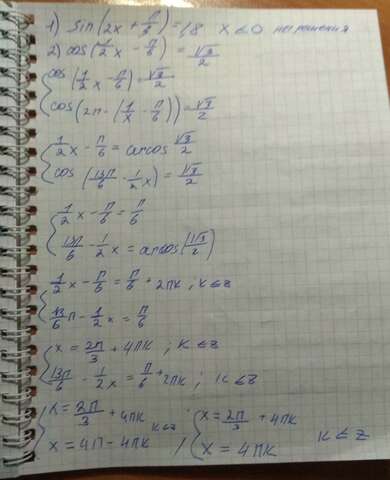 1) sin(2x + π/3) = 1,8 x ∈ 0 нет решения
2) cos(1/2 x - π/6) = √3/2
{ cos(1/2 x - π/6) = √3/2
cos(2π - (1/x - π/6)) = √3/2
{ 1/2 x - π/6 = arcos √3/2
cos(13π/6 - 1/2 x) = √3/2
{ 1/2 x - π/6 = π/6
13π/6 - 1/2 x = arcos(√3/2)
{ 1/2 x - π/6 = π/6 + 2πk ; k ∈ z
13/6 π - 1/2 x = π/6
{ x = 2π/3 + 4πk ; k ∈ z
13π/6 - 1/2 x = π/6 + 2πk ; k ∈ z
{ x = 2π/3 + 4πk k ∈ z ; { x = 2π/3 + 4πk
x = 4π - 4πk / x = 4πk k ∈ z